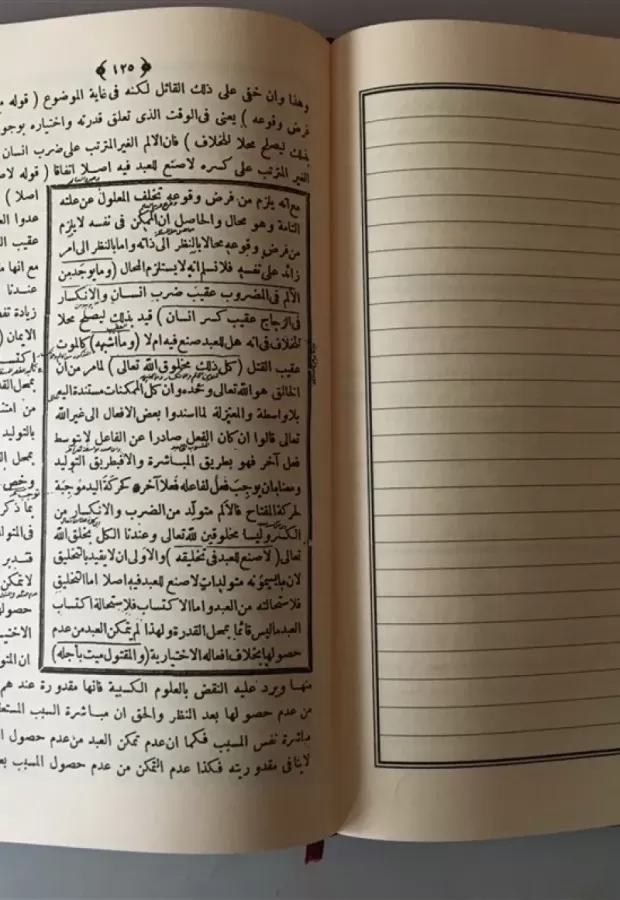 ﴿ ١٢٥ ﴾
وهذا وان خفى على ذلك القائل لكنه فى غاية الموضوع ( قوله
فرض وقوعه ) يعنى فى الوقت الذى تعلق قدرته واختياره بوجو
بذلك ليصلح محلا للخلاف ) فان الالم الغير المترتب على ضرب انسان
الغير المترتب على كسره لاصنع للعبد فيه اصلا اتفاقا ( قوله لا
مع انه يلزم من فرض وقوعه تخلف المعلول عن علته
التامة وهو محال والحاصل ان الممكن فى نفسه لا يلزم
من فرض وقوعه محال بالنظر الى ذاته واما بالنظر الى امر
زائد على نفسه فلا نسلم انه لا يستلزم المحال ( وما يوجد من
الالم فى المضروب عقيب ضرب انسان والانكسار
فى الزجاج عقيب كسر انسان ) قيد بذلك ليصلح محلا
للخلاف فى انه هل للعبد صنع فيه ام لا ( وما اشبهه ) كالموت
عقيب القتل ( كل ذلك مخلوق الله تعالى ) لما مر من ان
الخالق هو الله تعالى وحده وان كل الممكنات مستندة اليه
بلا واسطة والمعتزلة لما اسندوا بعض الافعال الى غير الله
تعالى قالوا ان كان الفعل صادرا عن الفاعل لا بتوسط
فعل آخر فهو بطريق المباشرة والا فبطريق التوليد
ومعناه ان يوجب فعل لفاعله فعلا آخر كحركة اليد موجبة
لحركة المفتاح فالالم متولد من الضرب والانكسار من
الكسر وليسا مخلوقين لله تعالى وعندنا الكل بخلق الله
تعالى ( لا صنع للعبد فى تخليقه ) والاولى ان لا يقيد بالتخليق
لان ما يسمونه متولدات لا صنع للعبد فيه اصلا اما التخليق
فلاستحالته من العبد واما الاكتساب فلاستحالة اكتساب
العبد ما ليس قائما بمحل القدرة ولهذا لم يتمكن العبد من عدم
حصولها بخلاف افعاله الاختيارية ( والمقتول ميت بأجله )
اصلا )
عدوا الع
عقيب ال
مع انها م
عندنا
زيادة تف
الايمان (
اكتس
بمحل القد
من امتن
بالتوليد
بمحل ال
وخص
بما ذكر
فى المتول
قسدير
لا تمكن
حصولها
الاختي
ان المتو
منها ويرد عليه النقض بالعلوم الكسبية فانها مقدورة عند هم
من عدم حصو لها بعد النظر والحق ان مباشرة السبب المستعق
مباشرة نفس المسبب فكما ان عدم تمكن العبد من عدم حصول
لاينا فى مقدوريته فكذا عدم التمكن من عدم حصول المسبب بعد